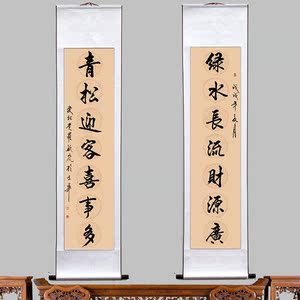 綠水長流財源廣
戊戌年
青松迎客喜事多